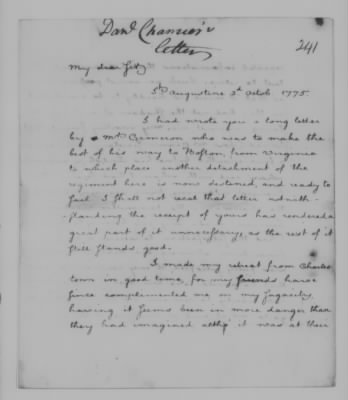 Danl Chamier's
letter
241
My dear Fitz
St Augustine 3d Octob 1775.
I had wrote you a long letter
by Mr Cameron who was to make the
best of his way to Boston, from Virginia
to which place another detachment of the
regiment here is now destined, and ready to
sail I shall not recal that letter notwith-
standing the receipt of yours has rendered a
great part of it unnecessary, as the rest of it
still stands good.
I made my retreat from Charles
town in good time, for my friends have
since complemented me on my sagacity,
having it seems been in more danger than
they had imagined altho' it was at their